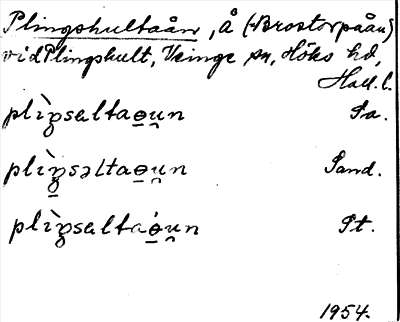 Plingshultaån, Å (Brostorpaån)
vid Plingshult, Veinge sn, Höks hd,
Hall. l.
plìŋsaltao̲u̯n Sa.
plìŋ̲səltao̲u̯n Sand.
plìŋsaltaȯ̲u̯n St.
1954.